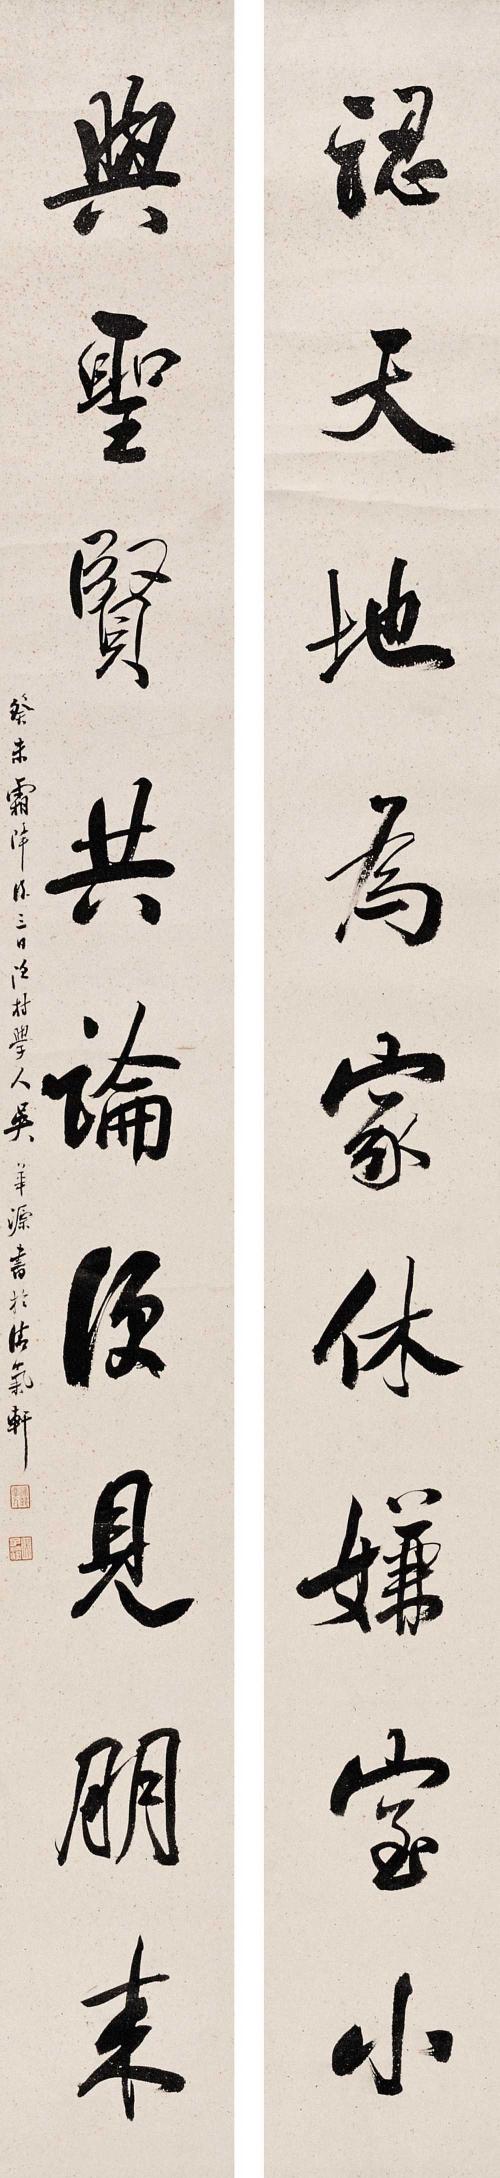 認天地為家休嫌室小
與聖賢共論便見朋來
癸未霜降後三日漁村學人吳華源書於氣軒